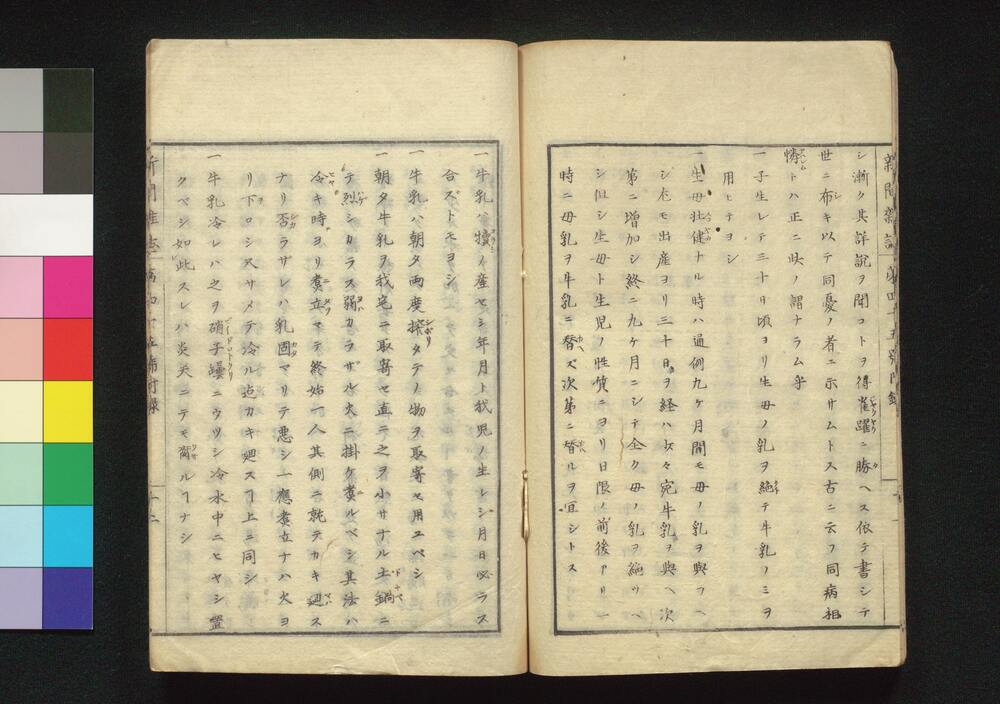 新聞雜誌 第四十五號附録
シ漸ク其詳説ヲ聞コトヲ得雀躍ニ勝ヘス依テ書シテ
世ニ布キ以テ同憂ノ者ニ示サムトス古ニ云フ同病相
憐トハ正ニ此ノ謂ナラム乎
一子生レテ三十日頃ヨリ生母ノ乳ヲ絶テ牛乳ノミヲ
用ヒテヨシ
一生母壮健ナル時ハ通例九ケ月間モ母ノ乳ヲ與フヘ
シ尤モ出産ヨリ三十日ヲ経ハ少々宛牛乳ヲ與ヘ次
第ニ増加シ終ニ九ケ月ニシテ全ク母ノ乳ヲ絶ツヘ
シ但シ生母ト生児ノ性質ニヨリ日限ノ前後アリ一
時ニ母乳ヲ牛乳ニ替ズ次第ニ替ルヲ宜シトス
一牛乳ハ犢ノ産セシ年月ト我児ノ生レシ月日必ラス
合ズトモヨシ
一牛乳ハ朝夕両度搾タテノ物ヲ取寄セ用ユベシ
一朝夕牛乳ヲ我宅ニ取寄セ直ニ之ヲ小サナル土鍋ニ
テ烈シカラス弱カラザル火ニ掛ケ煑ルベシ其法ハ
冷キ時ヨリ煑立マテ終始一人其側ニ就テカキ廻ス
ナリ否ラザレハ乳固マリテ悪シ一應煑立ナハ火ヨ
リ下ロシ又サメテ冷ル迠カキ廻スヿ上ニ同シ
一牛乳冷レハ之ヲ硝子罎ニウツシ冷水中ニヒヤシ置
クベシ如此スレハ炎天ニテモ腐ルヿナシ